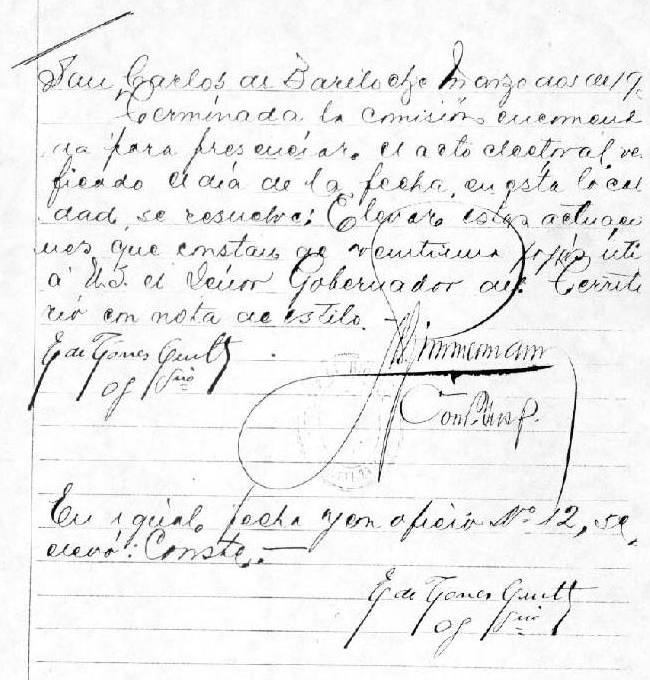 San Carlos de Bariloche Marzo dos de 19
Terminada la comisión encomend
da para presenciar el acto electoral, ve
ficado el día de la fecha, en esta locali
dad, se resuelve: Elevar estas actuacio
nes que constan de veintiuna fojas úti
á U.S. el Señor Gobernador del Territo
rio con nota de estilo.—
Zimmermann
E. de Torres
of
Com. Insp.
En igual fecha y con oficio Nº 12, se
elevó: Conste.—
E. de Torres
of